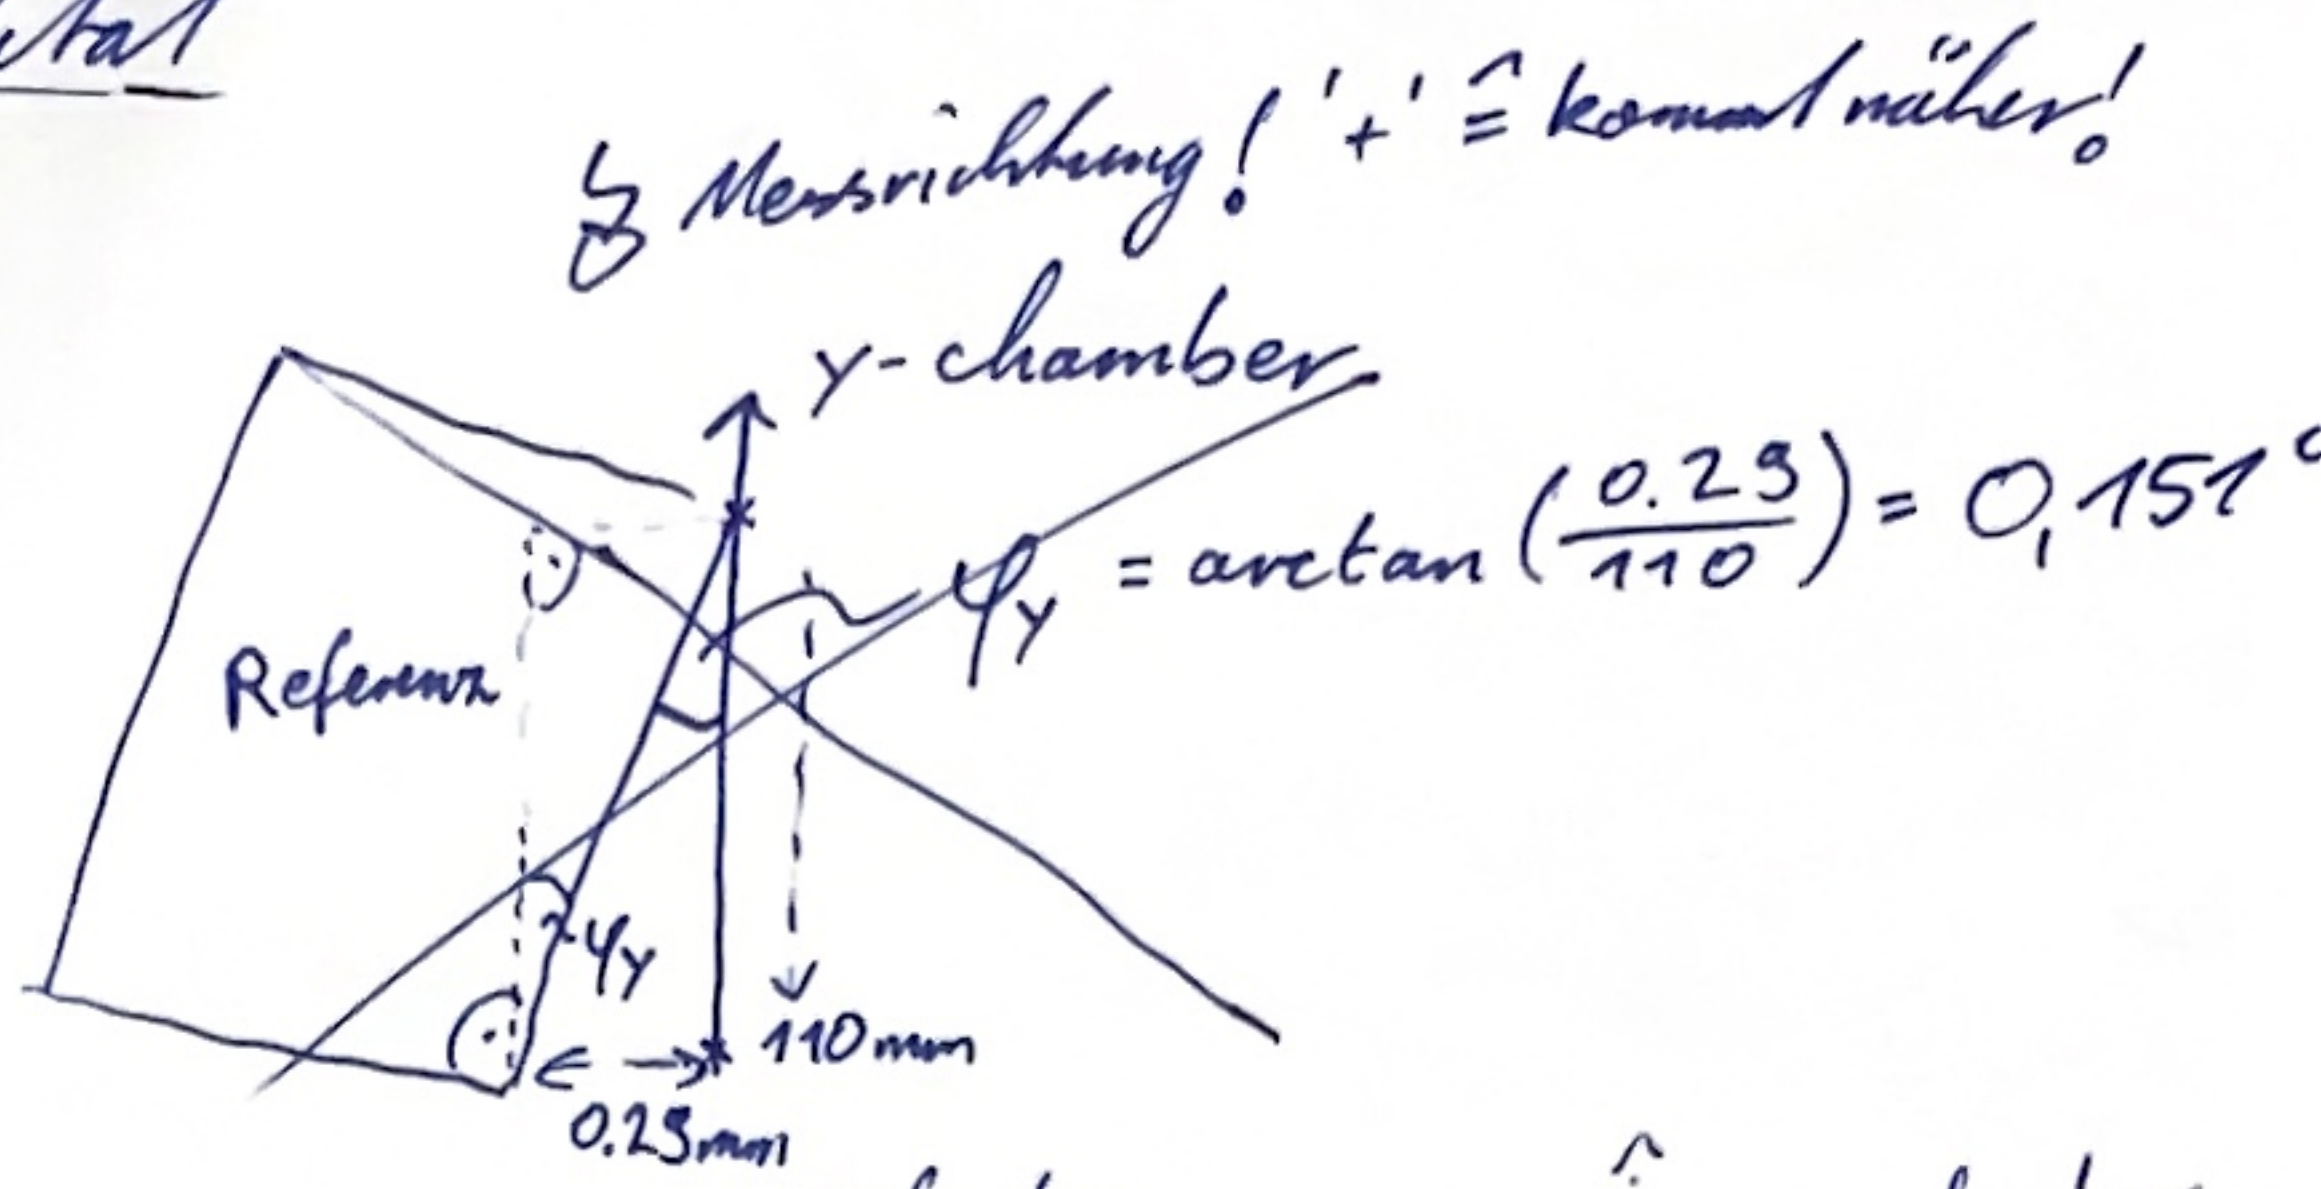 ↯ Messrichtung! '+' ≙ kommt näher!
y-chamber
φy = arctan (0.29/110) = 0,151°
Referenz
φy
110mm
0.29mm